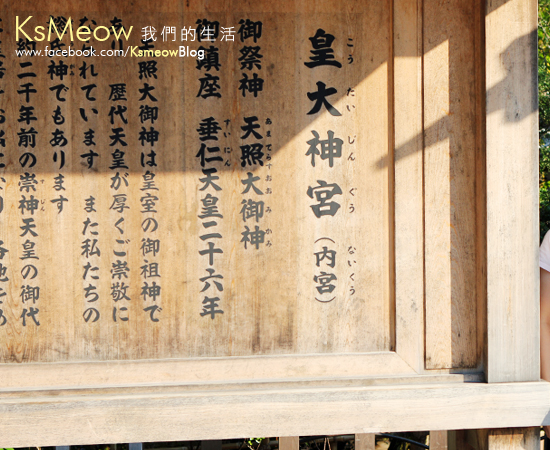 KsMeow 我們的生活
www.facebook.com/KsmeowBlog
皇大神宮（内宮）
こう たい じん ぐう ないくう
御祭神 天照大御神
あまてらすおおみかみ
御鎮座 垂仁天皇二十六年
すいにん
天照大御神は皇室の御祖神で
歴代天皇が厚くご崇敬に
なられています また私たちの
神でもあります
二千年前の崇神天皇の御代
すじん